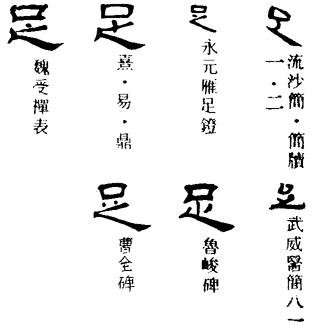 足
流沙簡·簡牘
一·二
足
武威醫簡八一
足
永元雁足鐙
足
魯峻碑
足
熹·易·鼎
足
曹全碑
足
魏受禪表